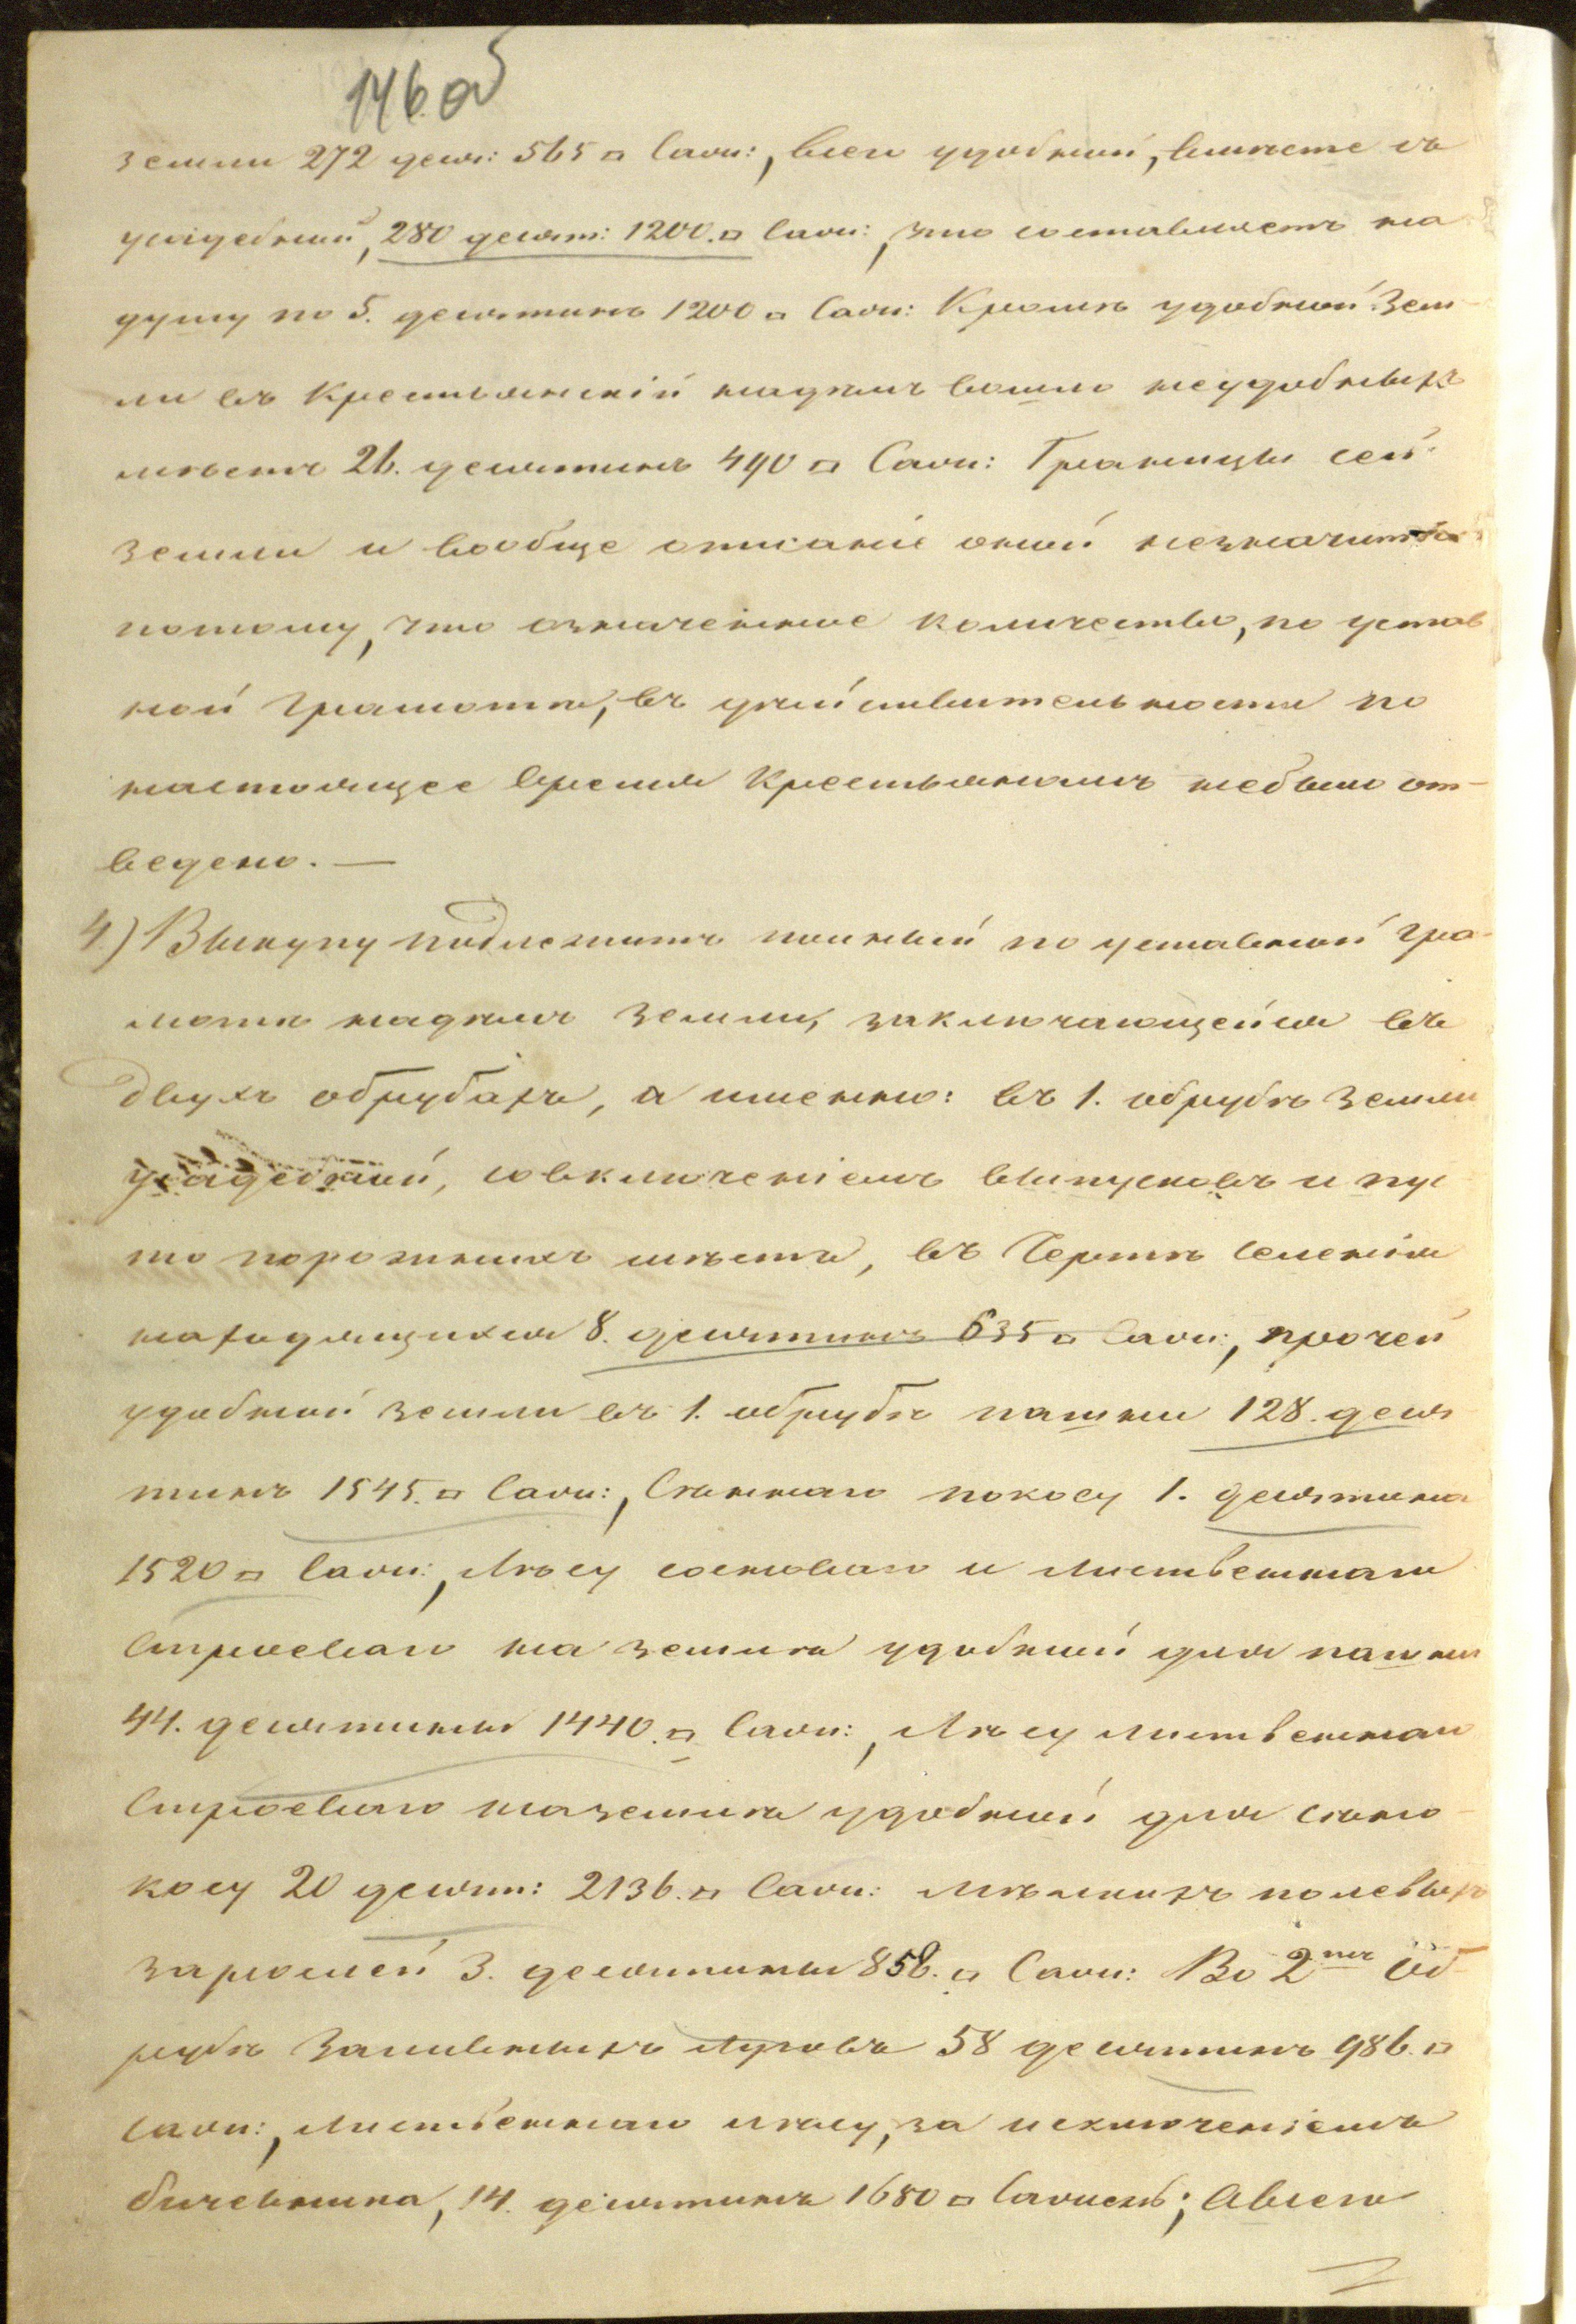 146.об
земли 272 десят: 565 □ Саж:, всей удобной, вместе съ
усадебной, 280 десят: 1200. □ Саж:, что составляетъ на
душу по 5. десятинъ 1200 □ Саж: Кромѣ удобной Зем-
ли въ Крестьянскій надѣлъ вошло неудобныхъ
мѣстъ 26. десятинъ 490 □ Саж: Границы сей
земли и вообще описаніе оной незначится
потому, что означенное количество, по устав
ной грамотѣ, въ дѣйствительности по
настоящее время Крестьянамъ небыло от-
ведено. —
4) Выкупу подлежитъ полный по уставной гра-
мотѣ надѣлъ земли, заключающейся въ
двухъ обрубахъ, а именно: въ 1. обрубѣ земли
усадебной, совключеніемъ выпусковъ и пус
то порожнихъ мѣстъ, въ Чертѣ Селенія
находящихся 8. десятинъ 635 □ Саж:, прочей
удобной земли въ 1. обрубѣ пашни 128. деся
тинъ 1545. □ Саж:, Сѣннаго покосу 1. десятина
1520 □ Саж:, Лѣсу сосноваго и лиственнаго
Строеваго на землѣ удобной для пашни
44. десятины 1440. □ Саж:, Лѣсу лиственнаго
Строеваго наземлѣ удобной для сѣно-
косу 20 десят: 2136. □ Саж: Мѣлкихъ полевыхъ
зарослей 3. десятины 858. □ Саж: Во 2мъ Об-
рубѣ Заливныхъ Луговъ 58 десятинъ 986. □
Саж:, лиственнаго лѣсу, за исключеніемъ
бичевника, 14. десятинъ 1680 □ Сажень; Авсего